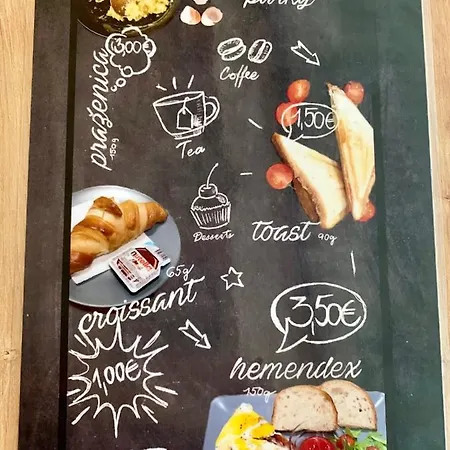 3,00€
praženica
150g
Coffee
1,50€
Tea
Desserts
toast 90g
65g
croissant
3,50€
1,00€
hemendex
150g